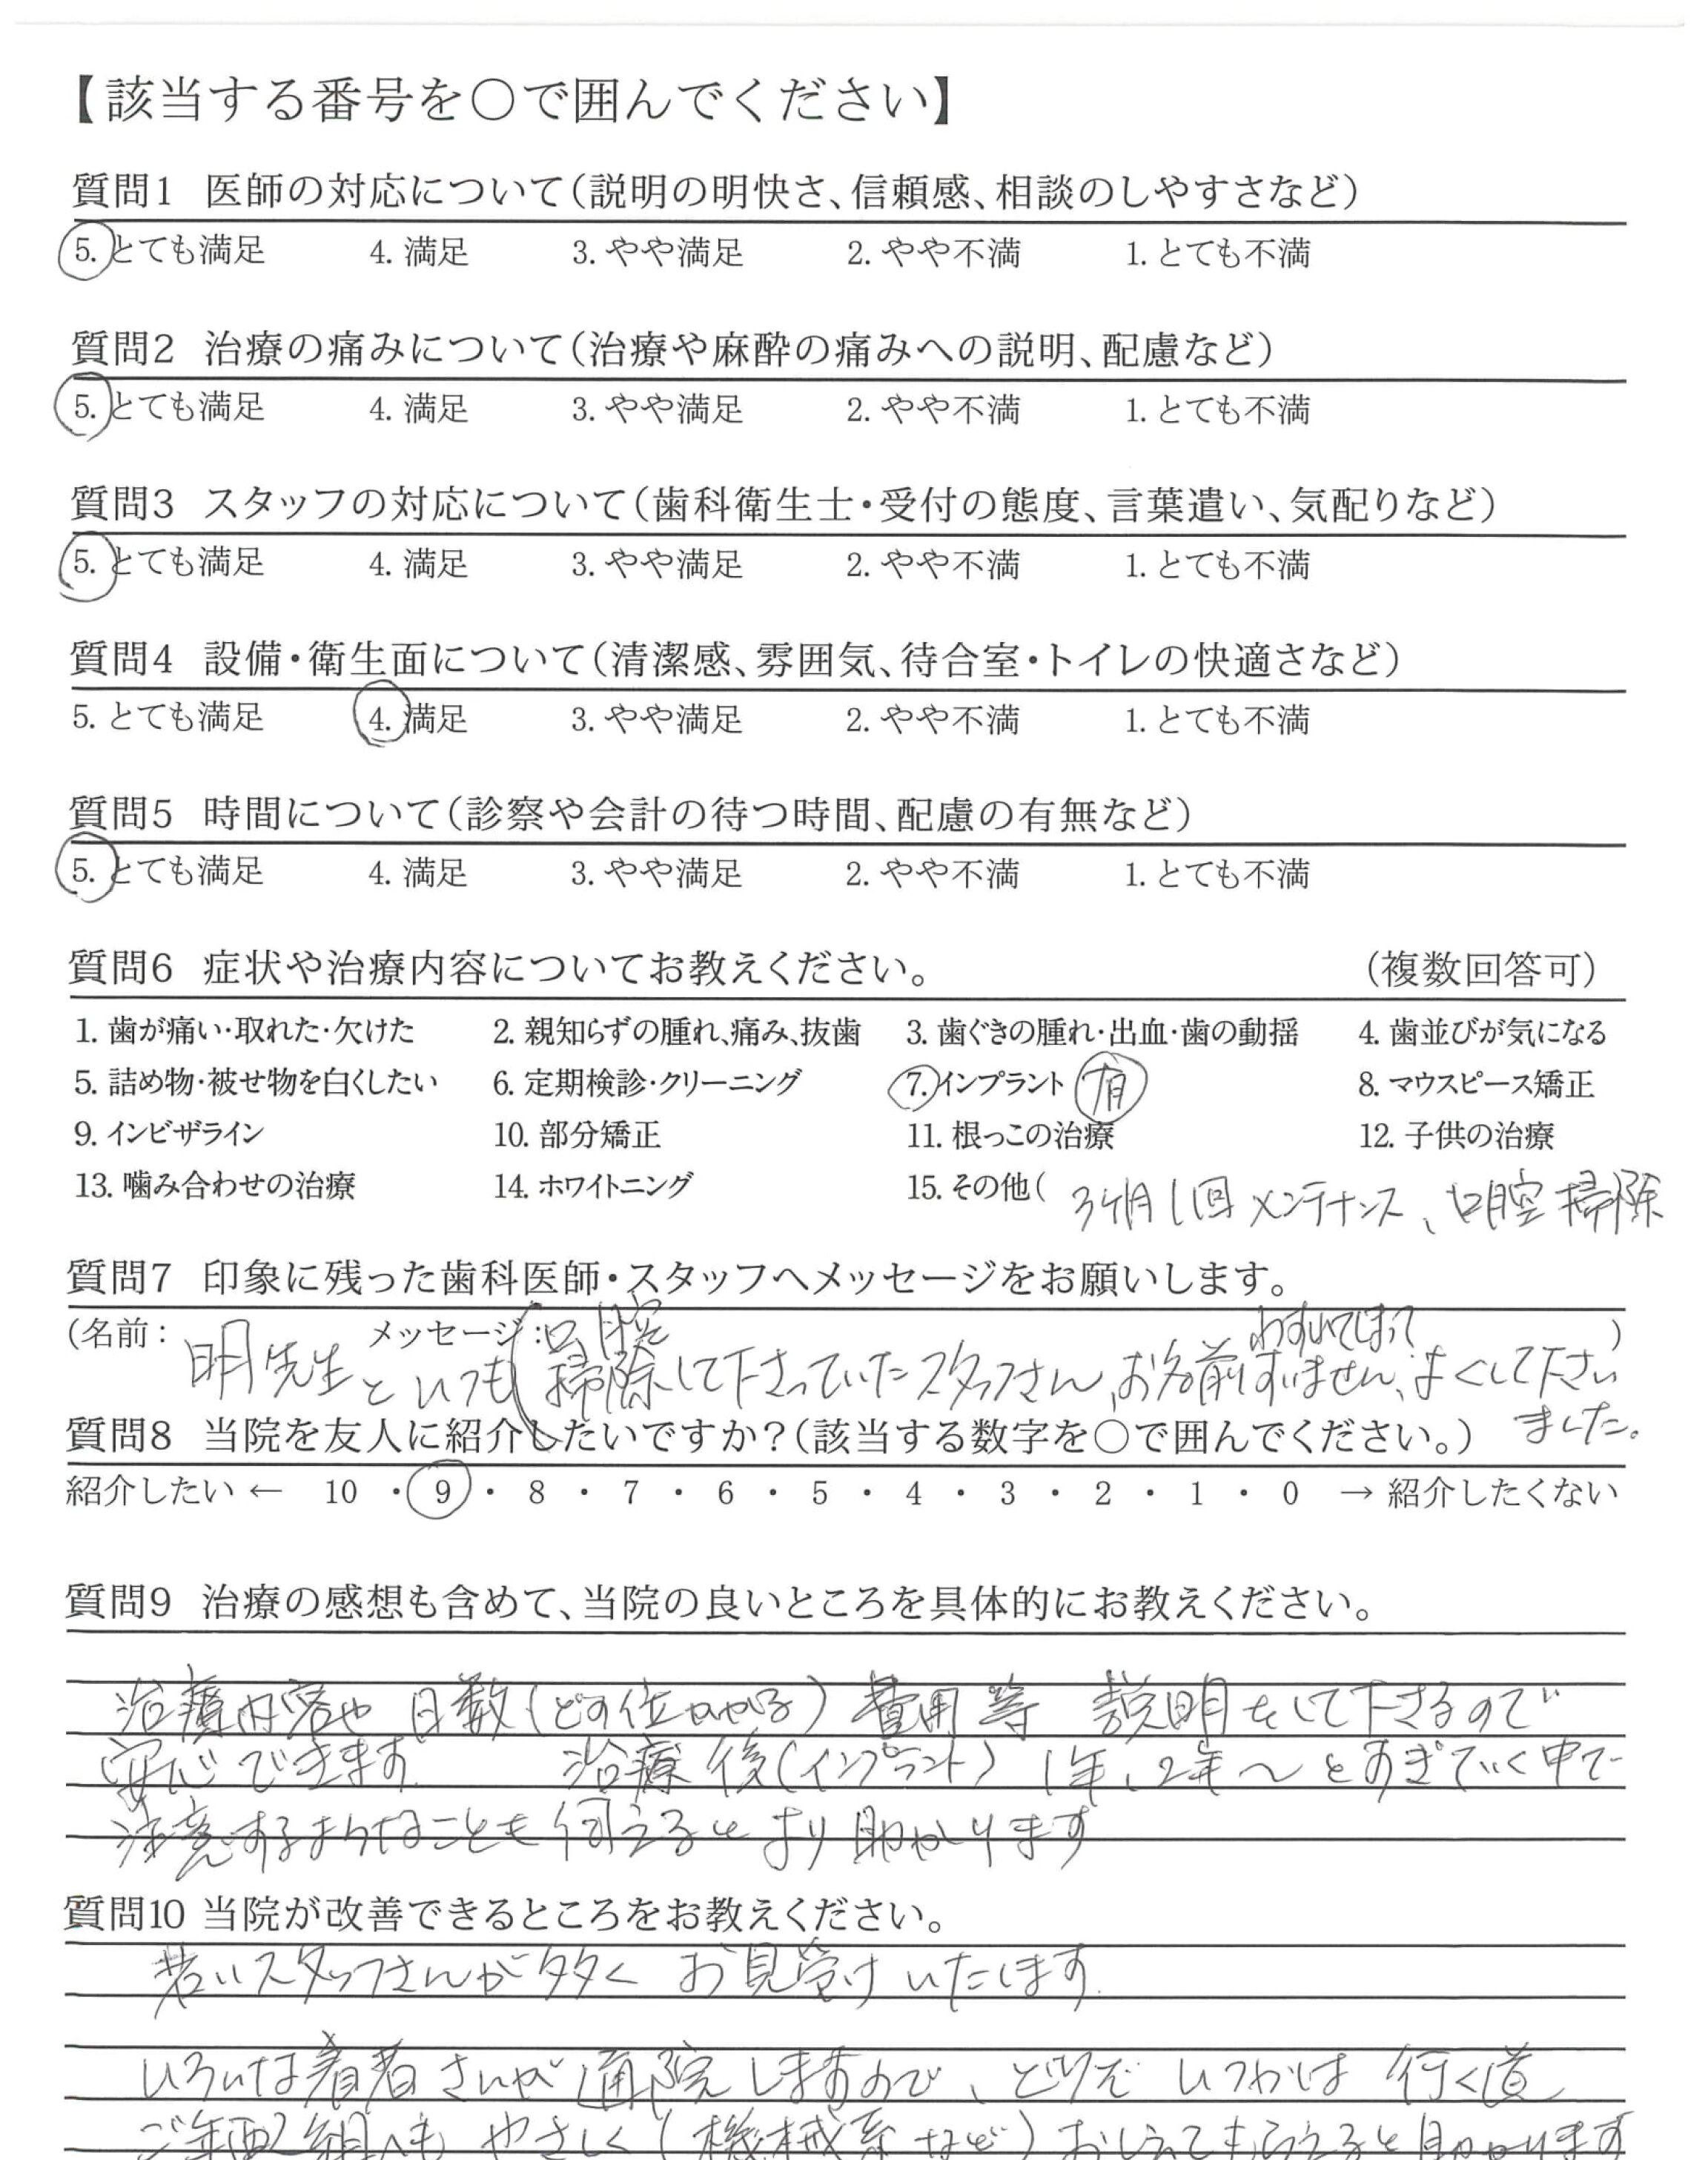 【該当する番号を○で囲んでください】
質問1 医師の対応について(説明の明快さ、信頼感、相談のしやすさなど)
5. とても満足 4. 満足 3. やや満足 2. やや不満 1. とても不満
質問2 治療の痛みについて(治療や麻酔の痛みへの説明、配慮など)
5. とても満足 4. 満足 3. やや満足 2. やや不満 1. とても不満
質問3 スタッフの対応について(歯科衛生士・受付の態度、言葉遣い、気配りなど)
5. とても満足 4. 満足 3. やや満足 2. やや不満 1. とても不満
質問4 設備・衛生面について(清潔感、雰囲気、待合室・トイレの快適さなど)
5. とても満足 4. 満足 3. やや満足 2. やや不満 1. とても不満
質問5 時間について(診察や会計の待つ時間、配慮の有無など)
5. とても満足 4. 満足 3. やや満足 2. やや不満 1. とても不満
質問6 症状や治療内容についてお教えください。 (複数回答可)
1. 歯が痛い・取れた・欠けた 2. 親知らずの腫れ、痛み、抜歯 3. 歯ぐきの腫れ・出血・歯の動揺 4. 歯並びが気になる
5. 詰め物・被せ物を白くしたい 6. 定期検診・クリーニング 7. インプラント 有 8. マウスピース矯正
9. インビザライン 10. 部分矯正 11. 根っこの治療 12. 子供の治療
13. 噛み合わせの治療 14. ホワイトニング 15. その他( 3ヶ月1回メンテナンス、口腔掃除
質問7 印象に残った歯科医師・スタッフへメッセージをお願いします。
(名前: メッセージ: 口腔 わすれてしまって )
明先生といつも(掃除して下さっていたスタッフさん、お名前すいません、よくして下さい
ました。
質問8 当院を友人に紹介したいですか?(該当する数字を○で囲んでください。)
紹介したい ← 10 ・ 9 ・ 8 ・ 7 ・ 6 ・ 5 ・ 4 ・ 3 ・ 2 ・ 1 ・ 0 → 紹介したくない
質問9 治療の感想も含めて、当院の良いところを具体的にお教えください。
治療内容や日数(どの位かかる)費用等 説明をして下さるので
安心できます 治療後(インプラント)1年、2年〜とすぎていく中で
注意するようなことも伺えるとより助かります
質問10 当院が改善できるところをお教えください。
若いスタッフさんが多く お見受けいたします
いろいな患者さんが通院しますので、どうぞいつかは行く道
ご年配組へもやさしく(機械系など)おしえてもらえると助かります